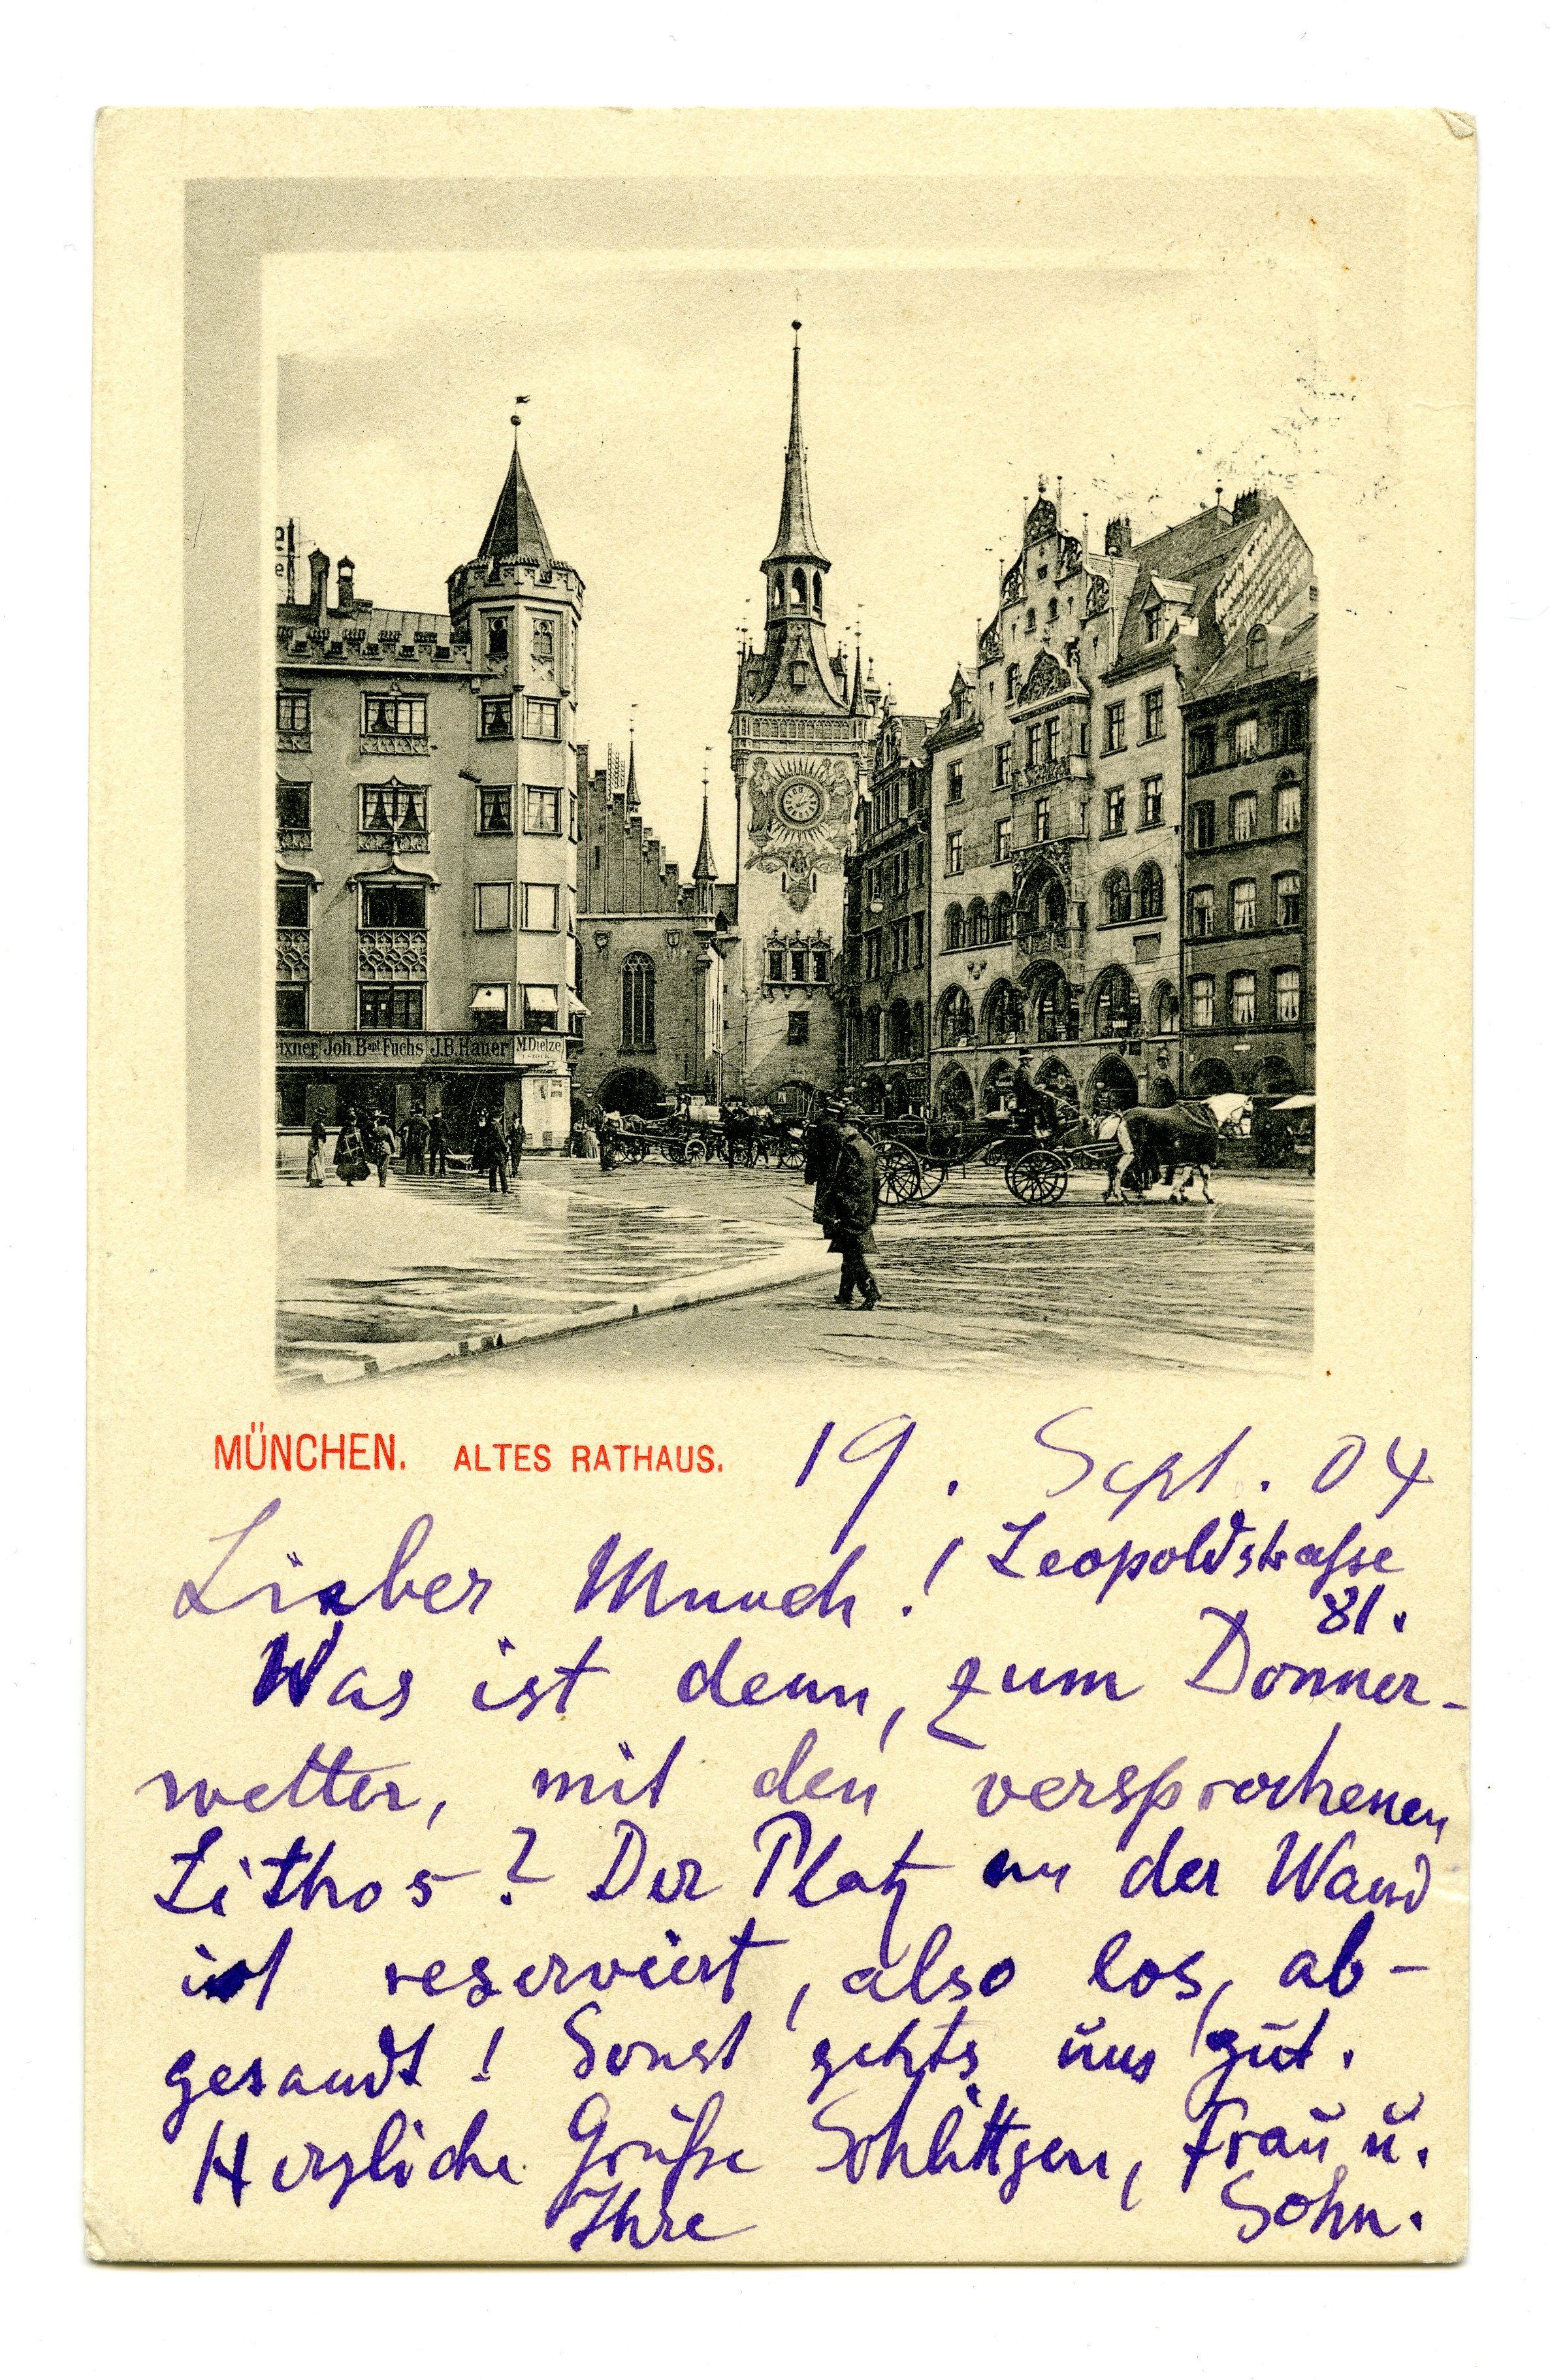 ixner, Joh. Bapt Fuchs J.B. Hauer M. Dietze
MÜNCHEN. ALTES RATHAUS.
19. Sept. 04
Leopoldstraße
81.
Lieber Munch!
Was ist denn, zum Donner-
wetter, mit den versprochenen
Lithos? Der Platz an der Wand
ist reserviert, also los, ab-
gesandt! Sonst gehts uns gut.
Herzliche Grüße Schlittgen, Frau u.
Ihre Sohn.